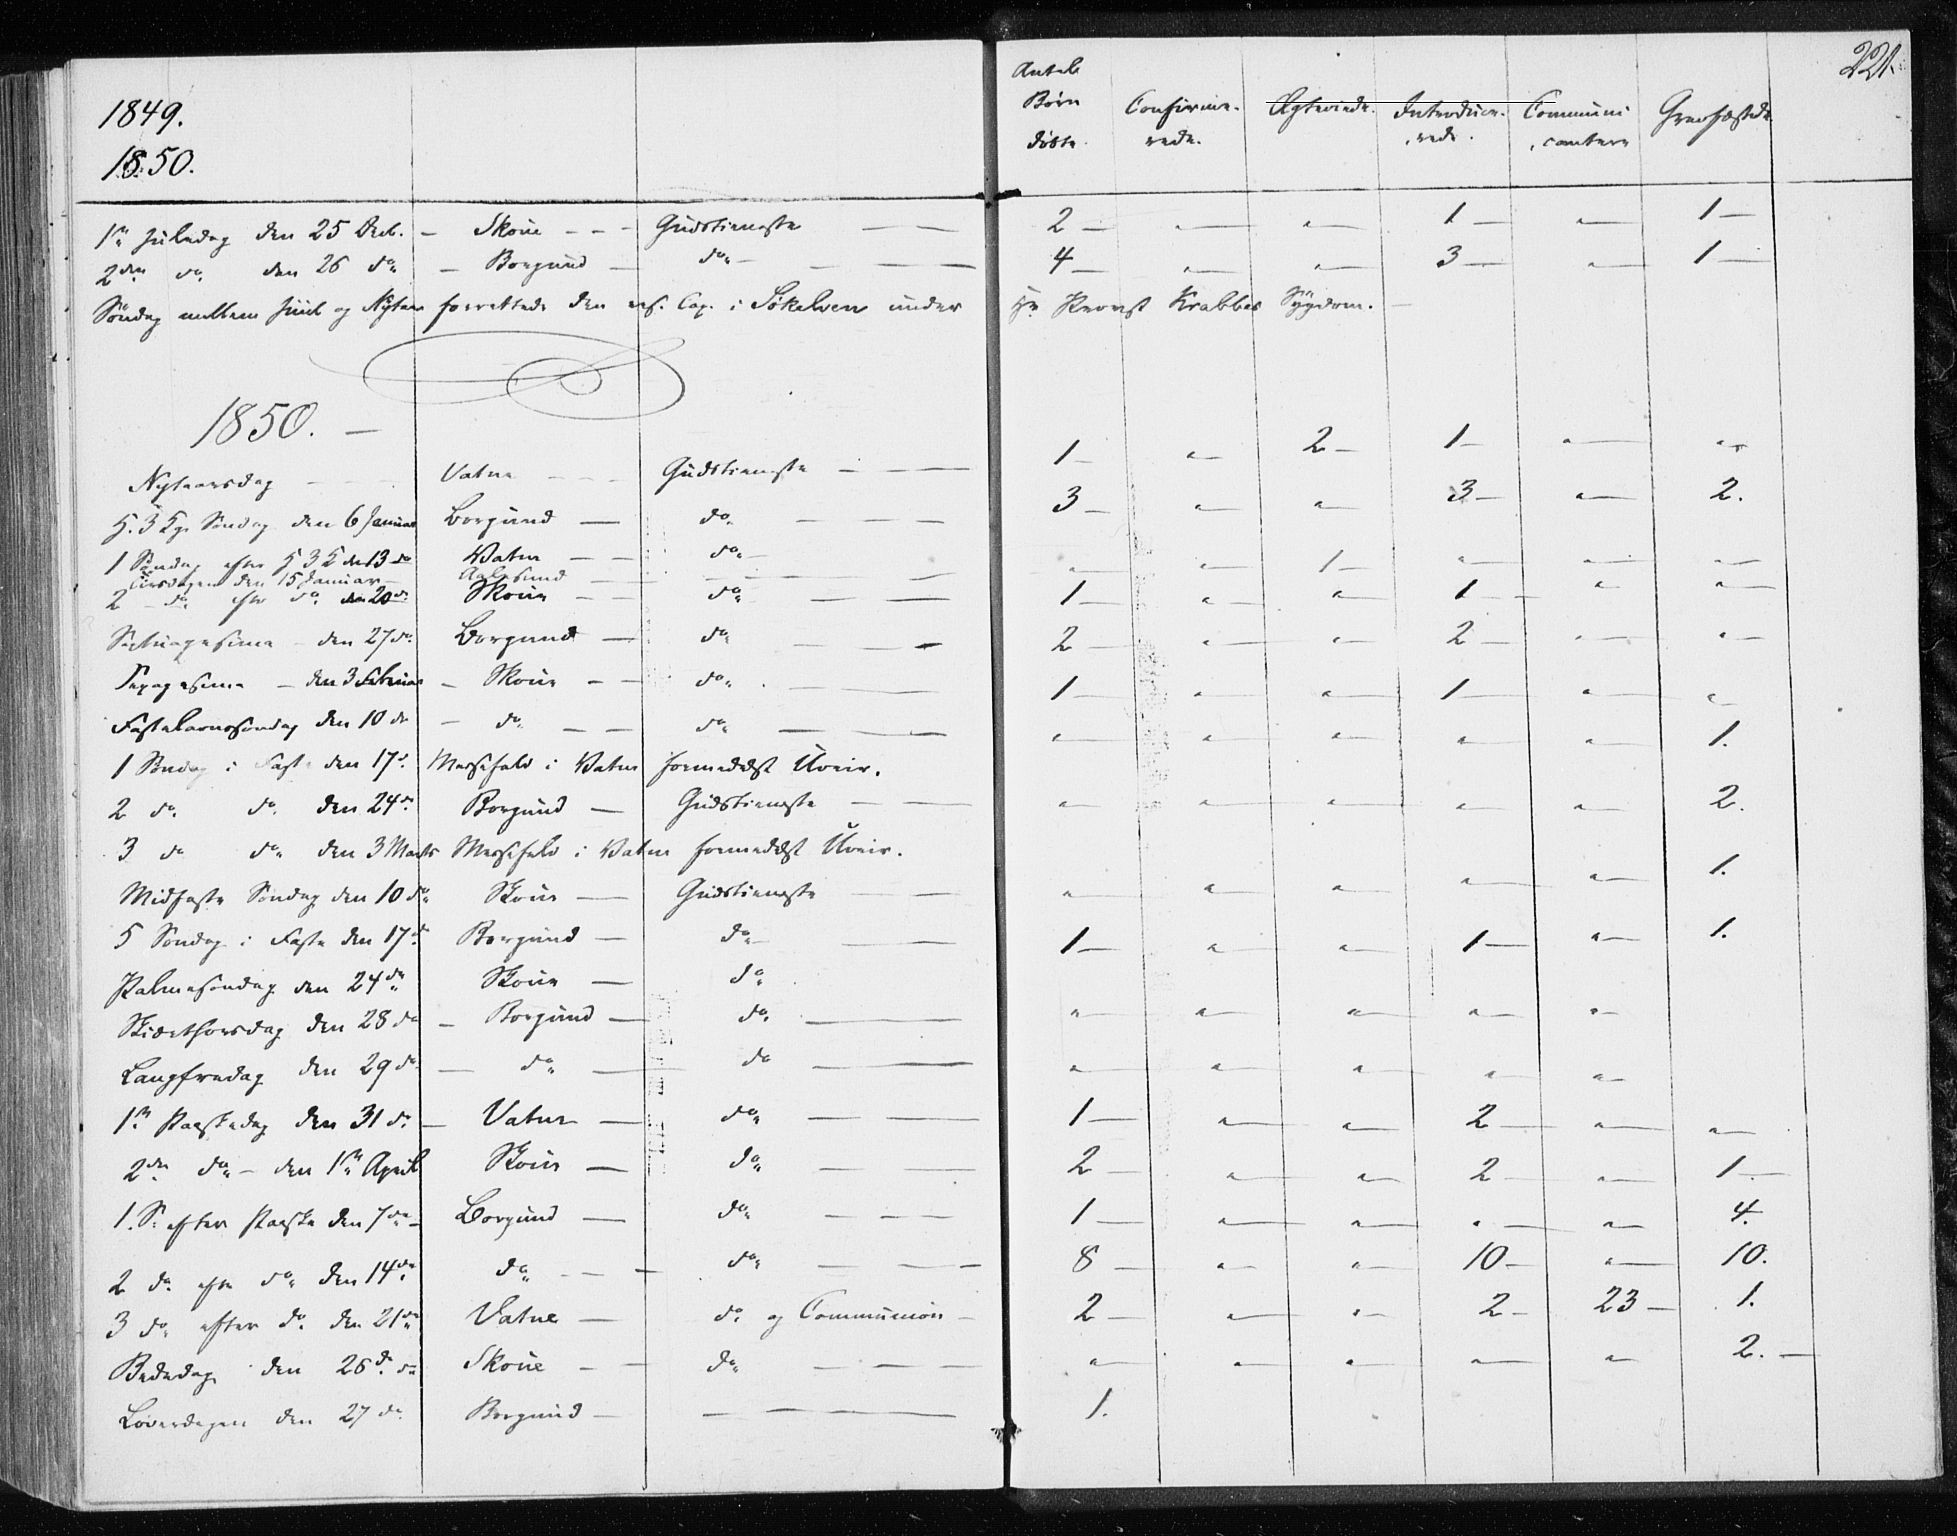 221.
1849.
1850.
Antal Börn döbte. Confirme-rede. Ægteviede. Introduce-rede. Communi-cantere Gravfæstede
1ste Juledag den 25 Decb. – Skoue – – – Gudstieneste — — 2 — " — " — 1 — " — 1 —
2den do. den 26 do. – Borgund — do. – — — 4 — " — " — 3 — " — 1 —
Söndag mellem Juul og Nytaar forrettede den res. Cap. i Sökelven under Hr. Provst Krabbes Sygdom. —
1850. —
Nytaarsdag – – – Vatne – – – Gudstieneste — — — 1 — " — 2 — 1 — " — "
H. 3 Kgr. Söndag den 6 Januar Borgund — do. — — — 3 — " — " — 3 — " — 2.
1 Söndag efter H 3 K den 13 do Vatne — — do. — " — " — 1 — " — " — " —
Tirsdagen den 15 Januar — Aalesund — — — —
2 – do. efter do. den 20 do. Skoue — — do. — — — 1 — " — " — 1 — " — " —
Septuagesima – den 27 do. Borgund — do. — — — 2 — " — " — 2 — " — " —
Sexagesima – den 3 Februar – Skoue – – do. . — — — 1 — " — " — 1 — " — "
Fastelavnssöndag den 10 do – do. — — do. — — — " — " — " — " — " — 1.
1 Söndag i Faste den 17 d. Messefald i Vatne formedelst Uveir.
2 do. do. den 24 do. Borgund — Gudstieneste — — " — " — " — " — " — 2.
3 do do. den 3 Marts Messefald i Vatne formedelst Uveir.
Midfaste Söndag den 10 do. Skoue — Gudstieneste — — " — " — " — " — " — 1.
5 Söndag i Faste den 17 d. Borgund — do. – — 1 — " — " — 1 — " — 1.
Palmesöndag den 24 do. Skoue — do.
Skiærthorsdag den 28 do – Borgund — do. — — " — " — " — " — "
Langfredag den 29 do. — do. — do — — " — " — " — " — "
1ste Paaskedag den 31 do. — Vatne — do. — — 1 — " — " — 2 — " — " —
2den do. – den 1ste April Skoue — do. — — 2 — " — " — 2 — " — 1 —
1. S: efter Paaske den 7 do. – Borgund — do. — — — 1 — " — " — " — " — 4.
2 do. efter do. den 14 do. do. – – – do. — — — 8 — " — " — 10 — " — 10.
3 do. efter do. den 21 do. Vatne — do. og Communion – 2 — " — " — 2 — 23 — 1.
Bededag den 26 d. do. Skoue – — do. — — — " — " — " — " — " — 2. —
Löverdagen den 27 do. Borgund — — — 1.